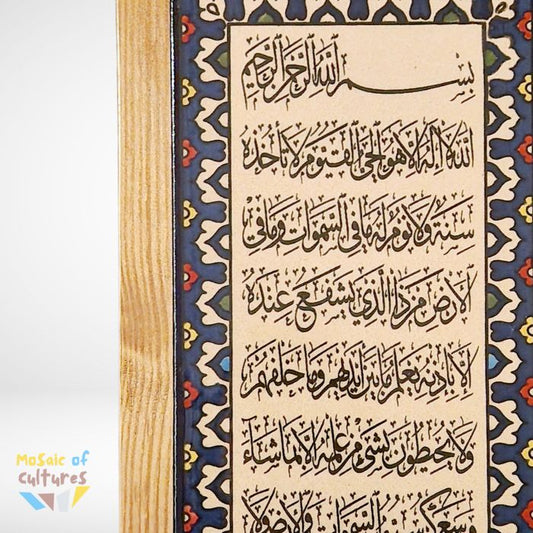 بسم الله الرحمن الرحيم
الله لا إله إلا هو الحي القيوم لا تأخذه
سنة ولا نوم له ما في السموات وما في
الأرض من ذا الذي يشفع عنده
إلا بإذنه يعلم ما بين أيديهم وما خلفهم
ولا يحيطون بشيء من علمه إلا بما شاء
وسع كرسيه السموات والأرض ولا
Mosaic of
Cultures